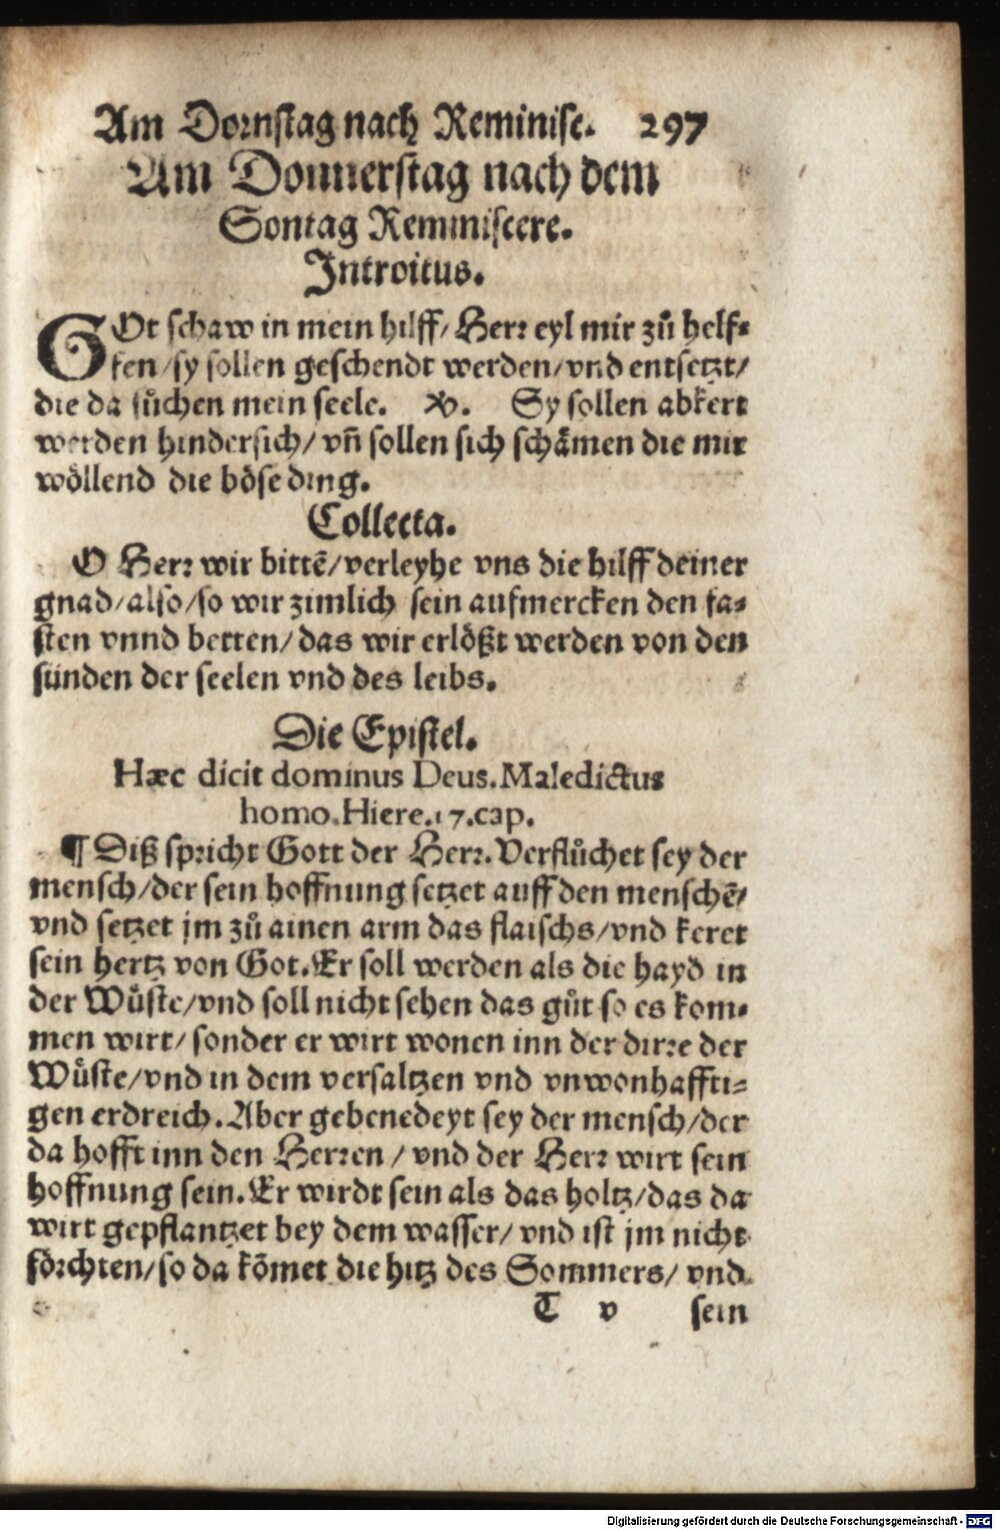 Am Dornstag nach Reminisc. 297
Am Donnerstag nach dem
Sontag Reminiscere.
Introitus.
GOt schaw in mein hilff/ Herr eyl mir zů helf⸗
fen/ sy sollen geschendt werden/ vnd entsetzt/
die da sůchen mein seele. ℣. Sy sollen abkert
werden hindersich/ vñ sollen sich schämen die mir
wöllend die böse ding.
Collecta.
O Herr wir bittẽ/ verleyhe vns die hilff deiner
gnad/ also/ so wir zimlich sein aufmercken den fa⸗
sten vnnd betten/ das wir erlößt werden von den
sünden der seelen vnd des leibs.
Die Epistel.
Hæc dicit dominus Deus. Maledictus
homo. Hiere. 17. cap.
¶ Diß spricht Gott der Herr. Verflůchet sey der
mensch/ der sein hoffnung setzet auff den menschẽ/
vnd setzet jm zů ainen arm das flaischs/ vnd keret
sein hertz von Got. Er soll werden als die hayd in
der Wůste/ vnd soll nicht sehen das gůt so es kom⸗
men wirt/ sonder er wirt wonen inn der dirre der
Wůste/ vnd in dem versaltzen vnd vnwonhaffti⸗
gen erdreich. Aber gebenedeyt sey der mensch/ der
da hofft inn den Herren/ vnd der Herr wirt sein
hoffnung sein. Er wirdt sein als das holtz/ das da
wirt gepflantzet bey dem wasser/ vnd ist jm nicht
förchten/ so da kõmet die hitz des Sommers/ vnd
T v sein
Digitalisierung gefördert durch die Deutsche Forschungsgemeinschaft - DFG